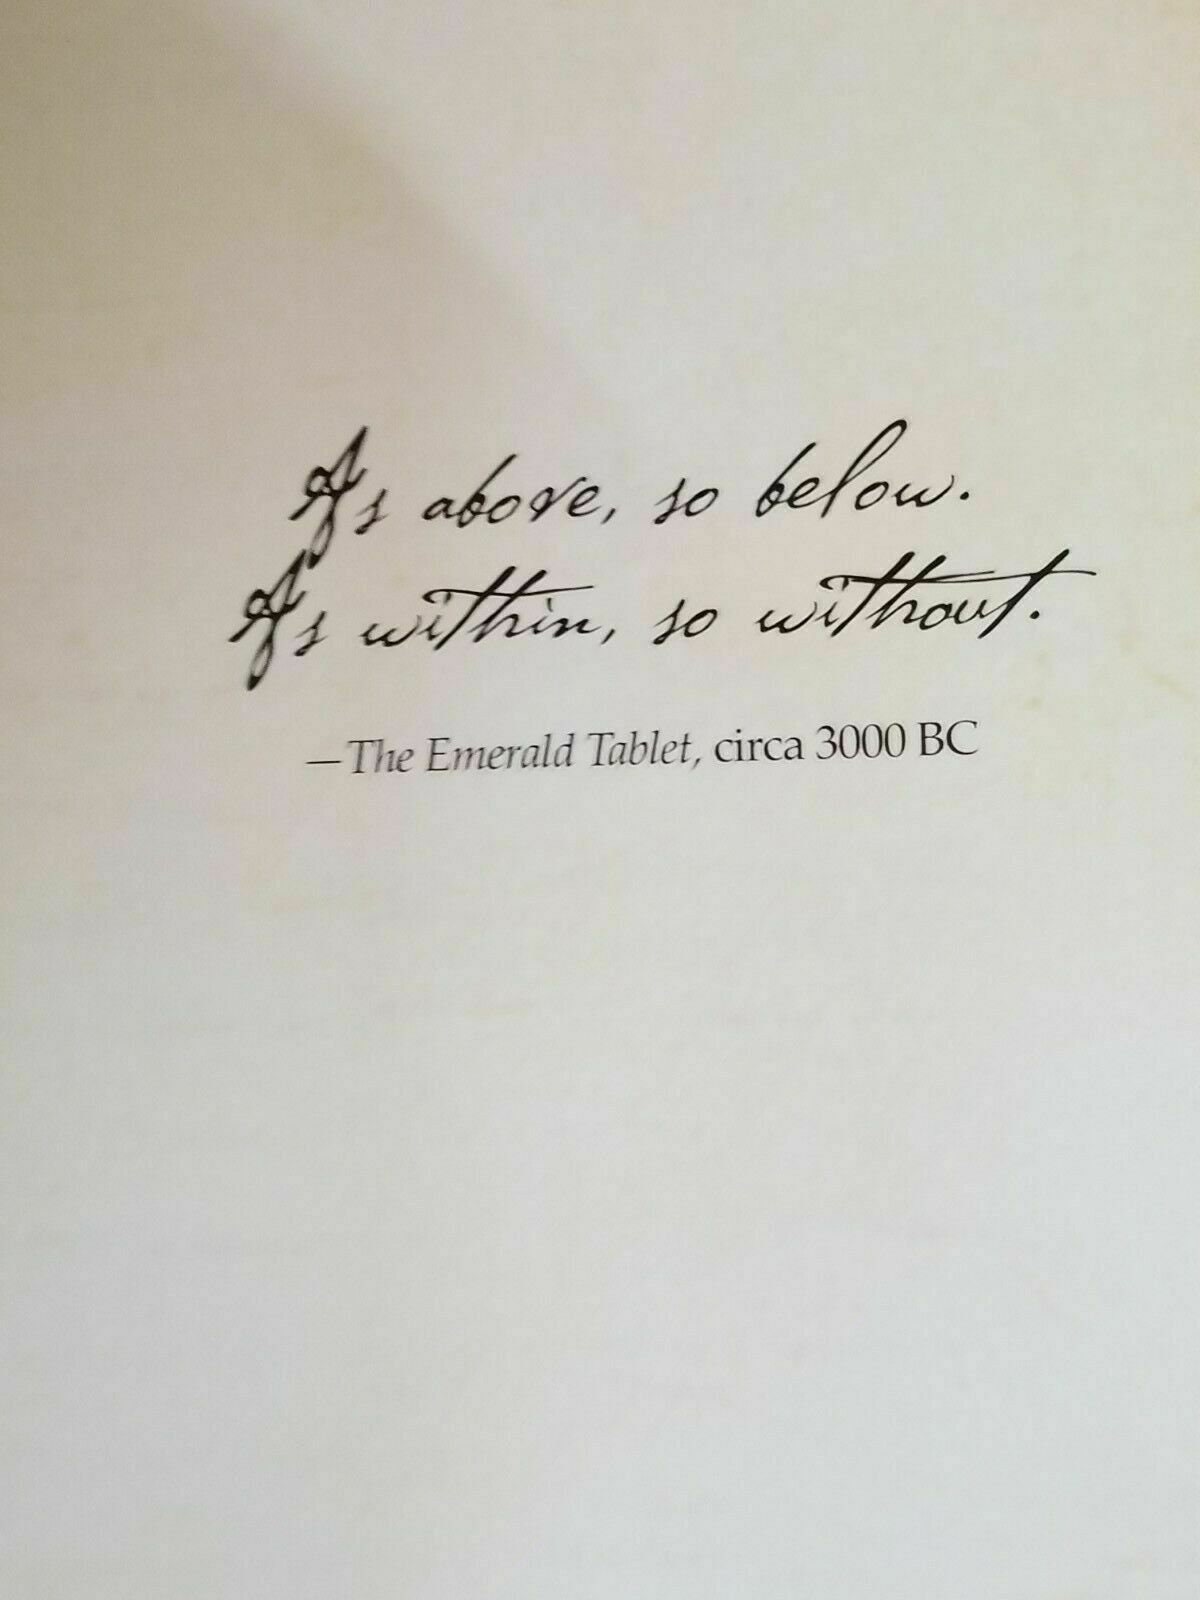 As above, so below.
As within, so without.
—The Emerald Tablet, circa 3000 BC